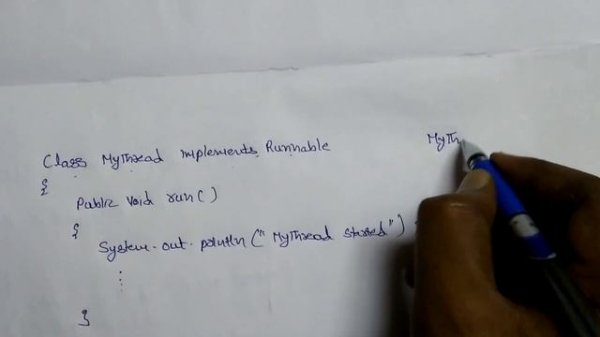 Class MyThread implements Runnable
{
Public void run()
{
System.out.println("MyThread started")
⋮
}
MyTh